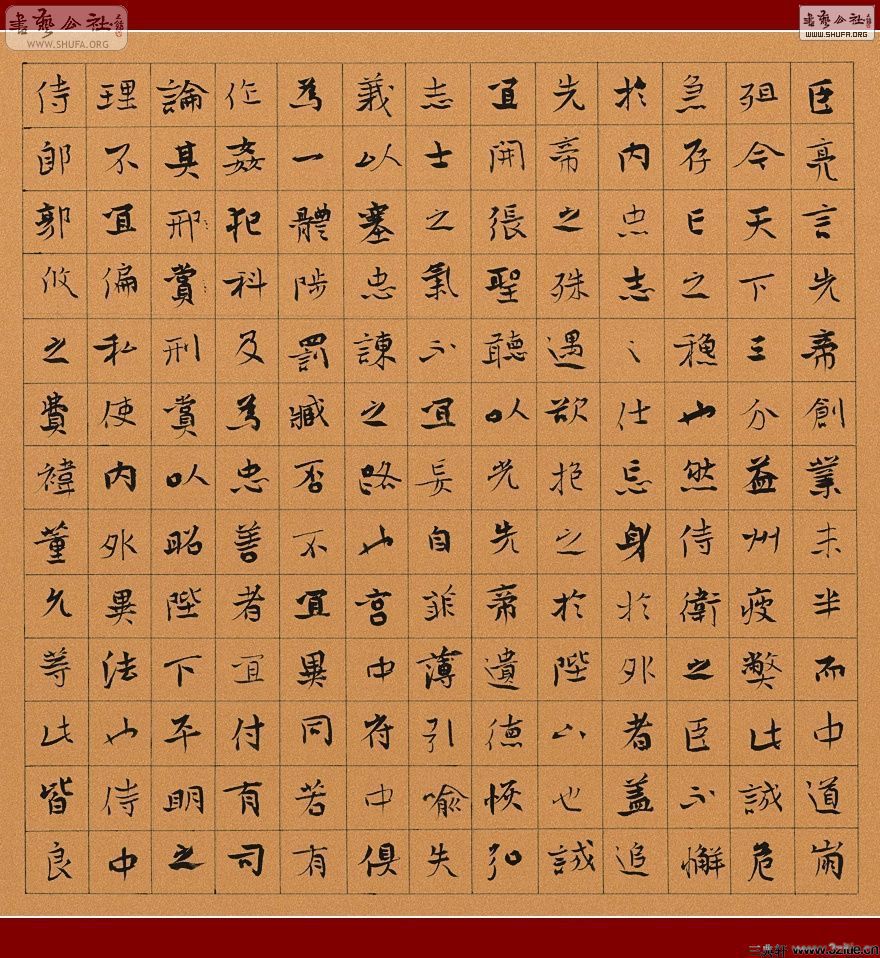 書藝公社
WWW.SHUFA.ORG
書藝公社
WWW.SHUFA.ORG
臣亮言先帝創業未半而中道崩
殂今天下三分益州疲弊此誠危
急存亡之秋也然侍衛之臣不懈
於内忠志之仕忘身於外者盖追
先帝之殊遇欲之於陛下也誠
宜開張聖聽以光先帝遺德恢弘
志士之氣不宜妄自菲薄引喻失
義以塞忠諫之路也宫中府中俱
為一體陟罰臧否不宜異同若有
作姦犯科及為忠善者宜付有司
論其邢賞刑賞以昭陛下平明之
理不宜偏私使内外異法也侍中
侍郎郭攸之費禕董允等此皆良
www.3zitie.cn